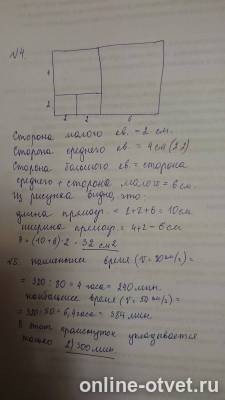 №4.
4
2
2 2 6
Сторона малого кв. = 2 см.
Сторона среднего кв. = 4 см (2·2)
Сторона большого кв. = сторона
среднего + сторона малого = 6 см.
Из рисунка видно, что:
длина прямоуг. = 2+2+6 = 10 см
ширина прямоуг. = 4+2 = 6 см
P = (10+6)·2 = 32 см2
№5. Наименьшее время (V=80км/ч) =
= 320:80 = 4 часа = 240 мин.
наибольшее время (V=50км/ч) =
= 320:50 = 6,4 часа = 384 мин
В этот промежуток укладывается
только 2) 300 мин.
online-otvet.ru